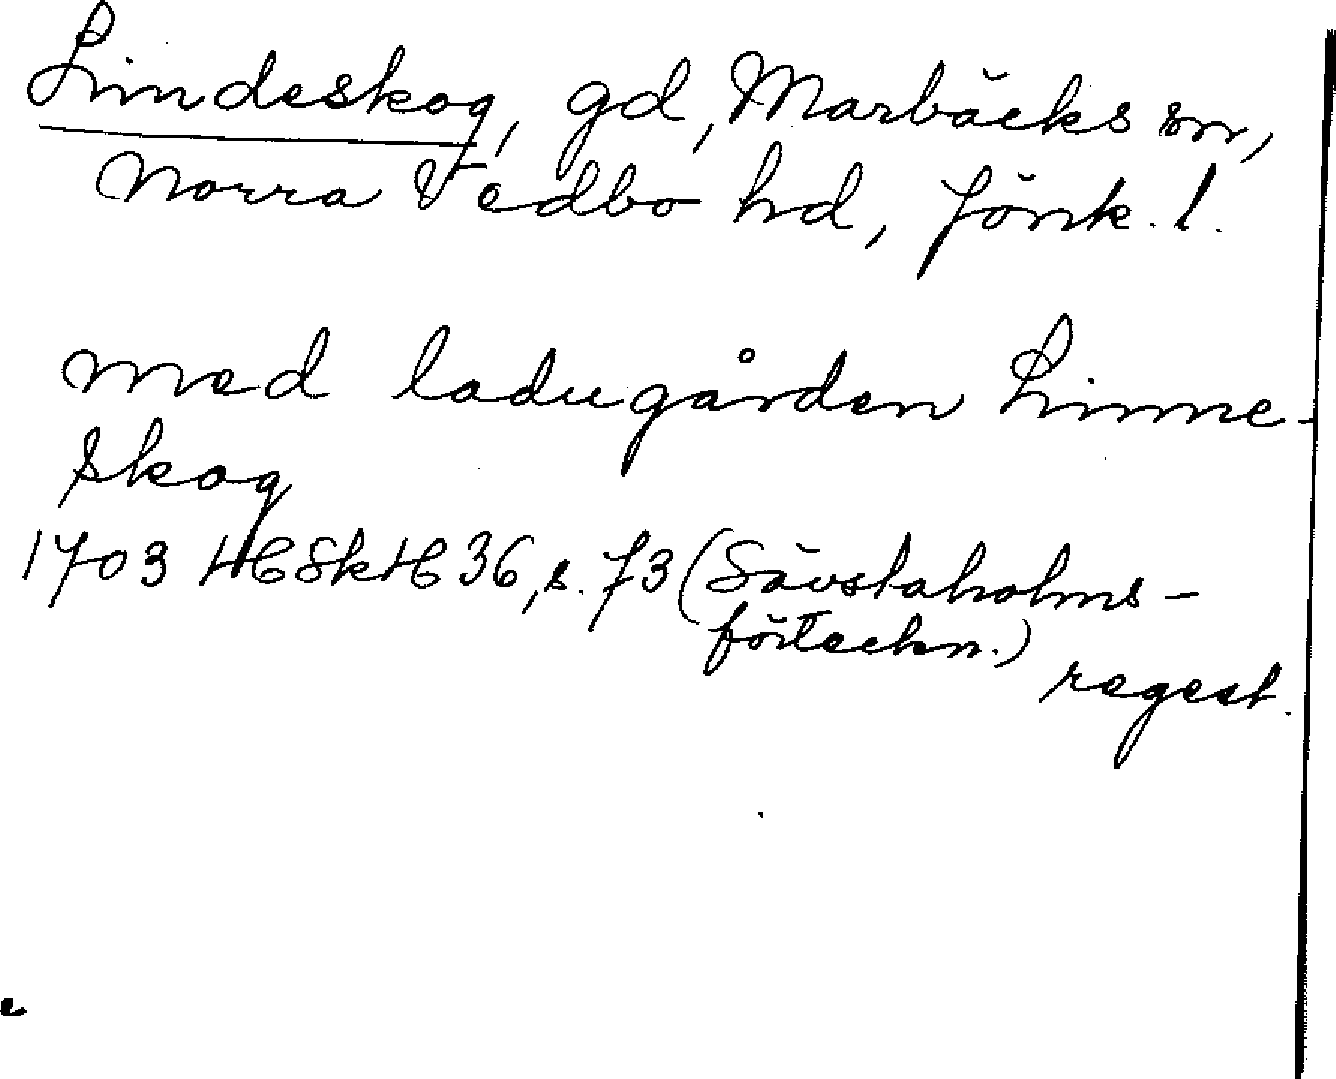 Lindeskog, gd, Marbäcks sn,
Norra Vedbo hd, Jönk. l.
med ladugården Linne-
skog
1703 HSkH 36, s. 73 (Sävstaholms-
förteckn.)
regest.